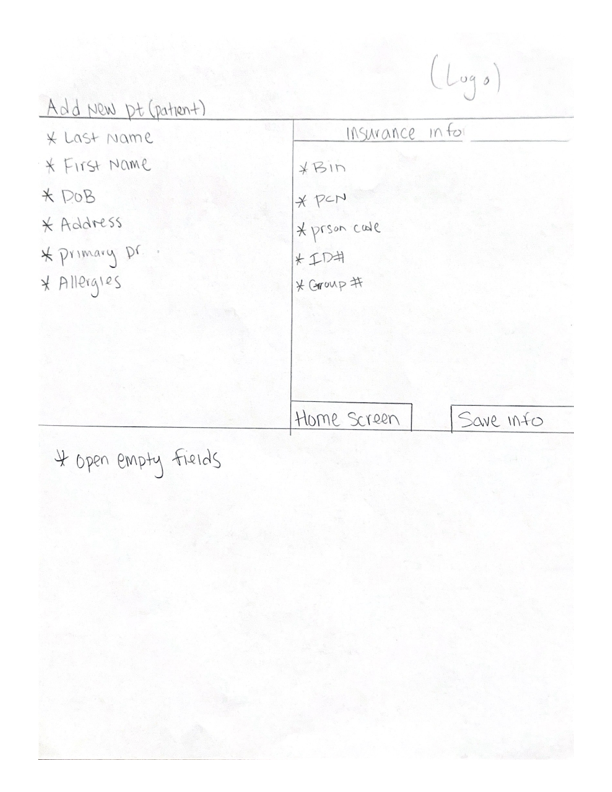 (Logo)
Add New pt (patient)
* Last Name
* First Name
* DoB
* Address
* primary Dr.
* Allergies
Insurance info
* Bin
* PCN
* prson code
* ID#
* Group #
Home Screen
Save info
* open empty fields